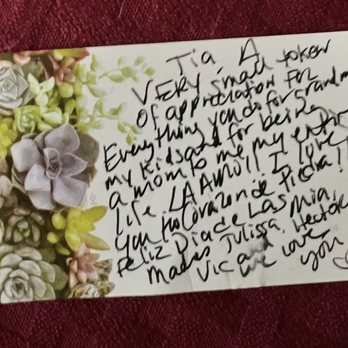 Tia, A
VERY small token
of appreciation for
Everything you do for Grandma
my kids and for being
a mom to me my entire
life. I love
you
Feliz Dia de Las
Madres Julissa, Hector
Vic and Mia,
we love
you